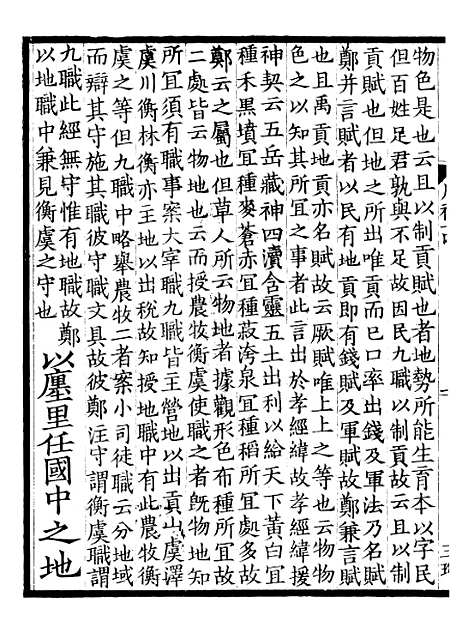 物色是也云且以制貢賦也者地勢所能生育本以字民
但百姓足君孰與不足故因民九職以制貢故云且以制
貢賦也但地之所出唯貢而已口率出錢及軍法乃名賦
鄭并言賦者以民有地貢即有錢賦及軍賦故鄭兼言賦
也且禹貢地貢亦名賦故云厥賦唯上上之等也云物物
色之以知其所宜之事者此言出於孝經緯故孝經緯援
神契云五岳藏神四瀆含靈五土出利以給天下黃白宜
種禾黑墳宜種麥蒼赤宜種菽洿泉宜種稻所宜處多故
鄭云之屬也但草人所云物地者據觀形色布種所宜故
二處皆云物地也云而授農牧衡虞使職之者旣物地知
所宜須有職事案大宰職九職皆王營地以出貢山虞澤
虞川衡林衡亦主地以出稅故知授地職中有此農牧衡
虞之等但九職中略舉農牧二者案小司徒職云分地域
而辯其守施其職彼守職文具故彼鄭注守謂衡虞職謂
九職此經無守惟有地職故鄭
以地職中兼見衡虞之守也
以廛里任國中之地